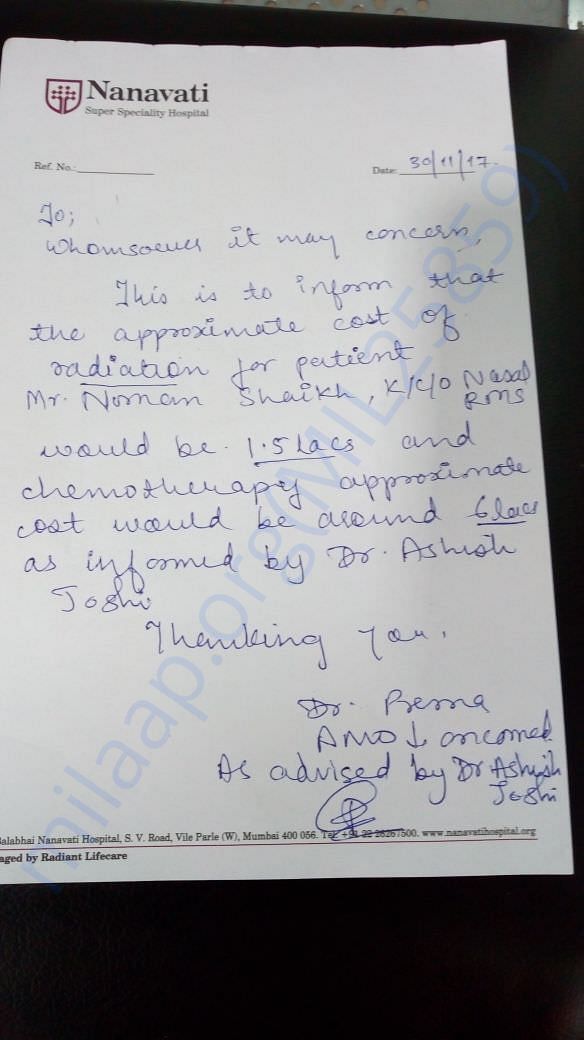 Nanavati
Super Speciality Hospital
Ref. No.:
Date: 30/11/17.
To;
Whomsoever it may concern,
This is to inform that
the approximate cost of
radiation for patient
Mr. Noman Shaikh, K/C/O Nasal
RMS
would be 1.5 Lacs and
chemotherapy approximate
cost would be around 6 lacs
as informed by Dr. Ashish
Joshi.
Thanking You.
Dr. Prerna
AMO
As advised by Dr Ashish
Joshi
Balabhai Nanavati Hospital, S. V. Road, Vile Parle (W), Mumbai 400 056. Tel. +91 22 26267500. www.nanavatihospital.org
aged by Radiant Lifecare
milaap.org(MIL25859)